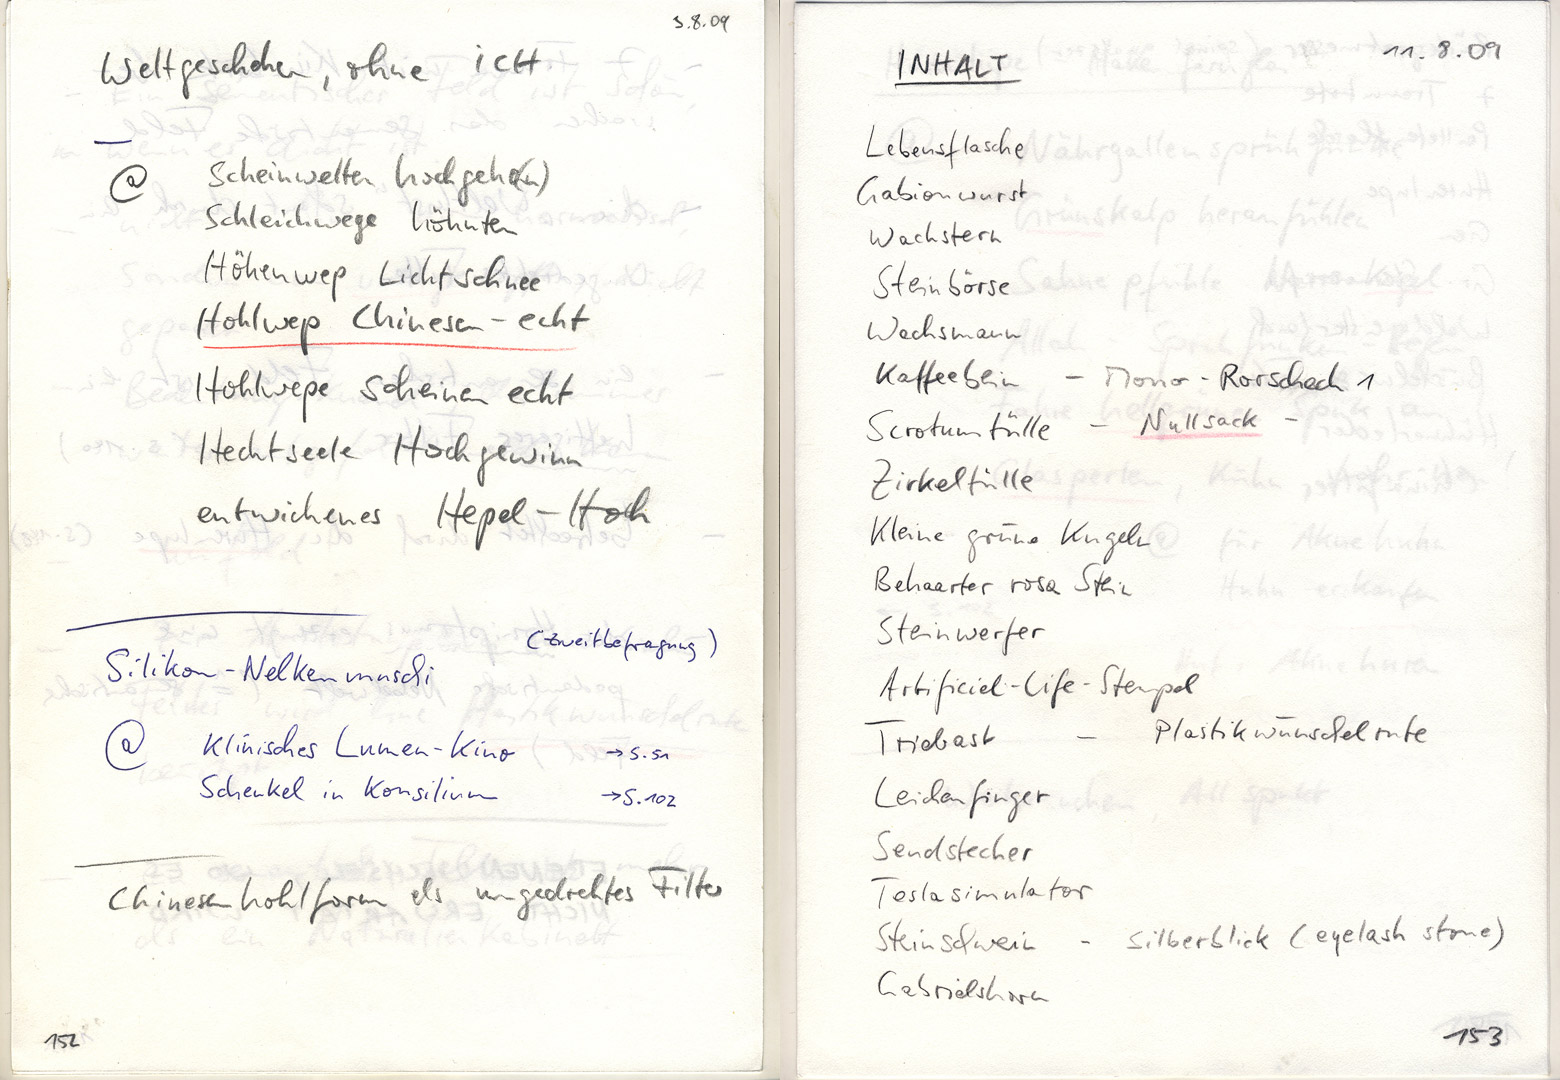 3.8.09
Weltgeschehen, ohne ICH
@ Scheinwelten hochgeh(n)
Schleichwege höhnten
Höhenweg Lichtschnee
Hohlweg Chinesen-echt
Hohlwege scheinen echt
Hechtseele Hochgewinn
entwichenes Hegel-Hoch
(Zweitbefragung)
Silikon-Nelkenmuschi
@ Klinisches Lumen-Kino → S.51
Schenkel in Konsilium → S.102
Chinesenhohlform als umgedrehtes Filter
152
11.8.09
INHALT
Lebensflasche
Gabionwurst
Wachstern
Steinbörse
Wachsmann
Kaffeebein - Mono-Rorschach 1
Scrotumfülle - Nullsack -
Zirkelfülle
Kleine grüne Kugeln
Behaarter rosa Stein
Steinwerfer
Artificial-Life-Stempel
Triebast - Plastikwünschelrute
Leidenfinger
Sendstecher
Teslasimulator
Steinschwein - Silberblick (eyelash stone)
Gabrielshorn
153